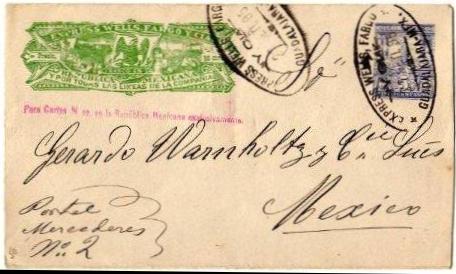 EXPRESS WELLS FARGO Y CIA
REPUBLICA MEXICANA
Y POR TODAS LAS LINEAS DE LA COMPAÑIA
EXPRESS WELLS, FARGO
GUADALAJARA
EXPRESS WELLS, FARGO
GUADALAJARA
Para Cartas en la República Mexicana exclusivamente.
Sr
Gerardo Warnholtz y Cia Sus
Mexico
Portal
Mercaderes
No. 2